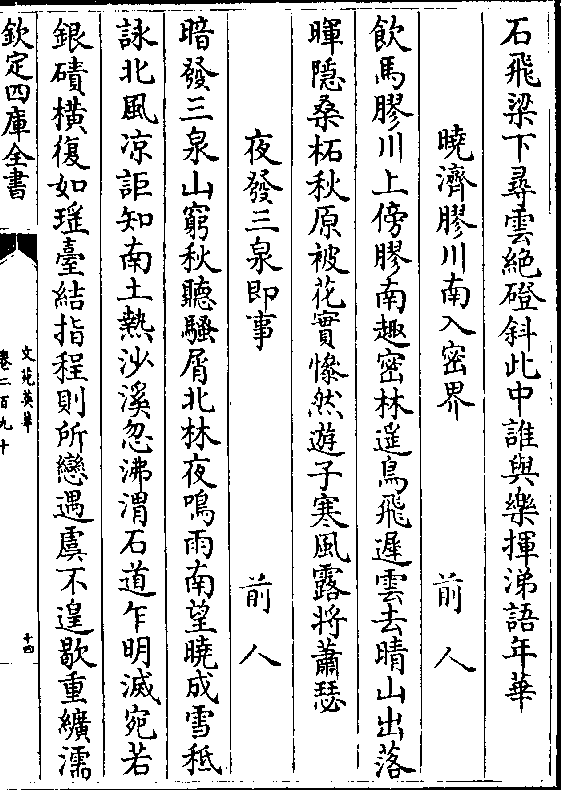 石飛梁下尋雲絶磴斜此中誰與樂揮涕語年華
曉濟膠川南入密界 前人
飲馬膠川上傍膠南趣密林遥鳥飛遲雲去晴山出落
暉隠桑柘秋原被花實慘然遊子寒風露將蕭瑟
夜發三泉即事 前人
暗發三泉山窮秋聽騷屑北林夜鳴雨南望曉成雪秪
詠北風凉詎知南土熱沙溪忽沸渭石道乍明滅宛若
銀磧横復如瑶臺結指程則所戀遇虞不遑歇重纊濡
欽定四庫全書
文苑英華
卷二百九十
十四